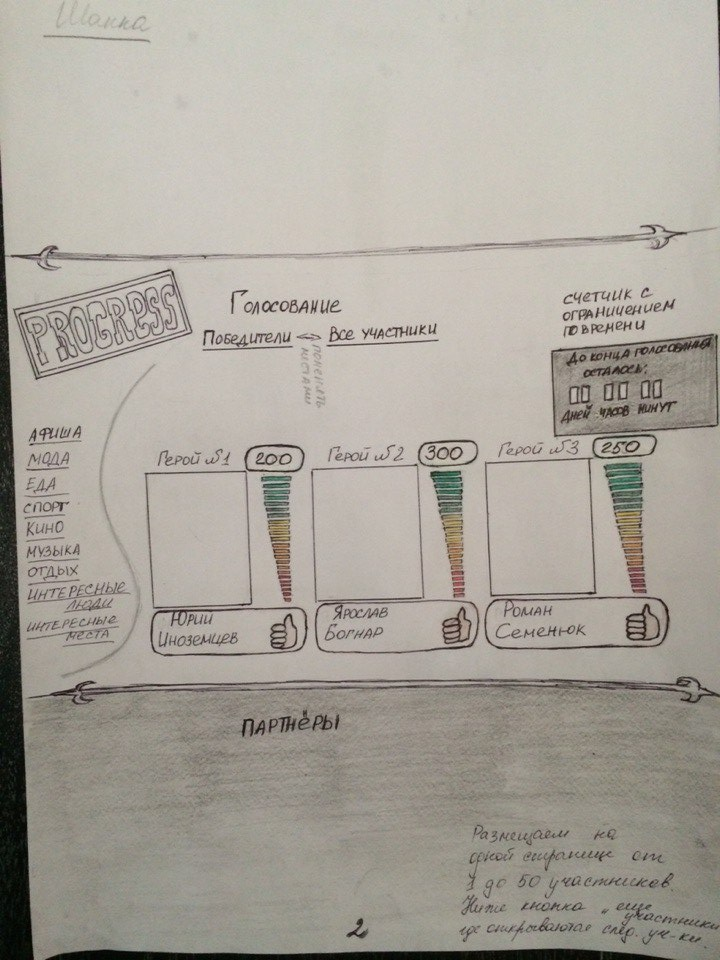 Шапка
PROGRESS
Голосование
Победители Все участники
поменять
местами
СЧЕТЧИК С
ОГРАНИЧЕНИЕМ
ПО ВРЕМЕНИ
ДО КОНЦА ГОЛОСОВАНИЯ
ОСТАЛОСЬ:
ДНЕЙ ЧАСОВ МИНУТ
АФИША
МОДА
ЕДА
СПОРТ
КИНО
МУЗЫКА
ОТДЫХ
ИНТЕРЕСНЫЕ
ЛЮДИ
ИНТЕРЕСНЫЕ
МЕСТА
Герой №1 200
Герой №2 300
Герой №3 250
Юрий
Иноземцев
Ярослав
Богнар
Роман
Семенюк
ПАРТНЁРЫ
Размещаем на
одной странице от
1 до 50 участников.
Ниже кнопка "еще
участники
где открываются след. уч-ки.
2